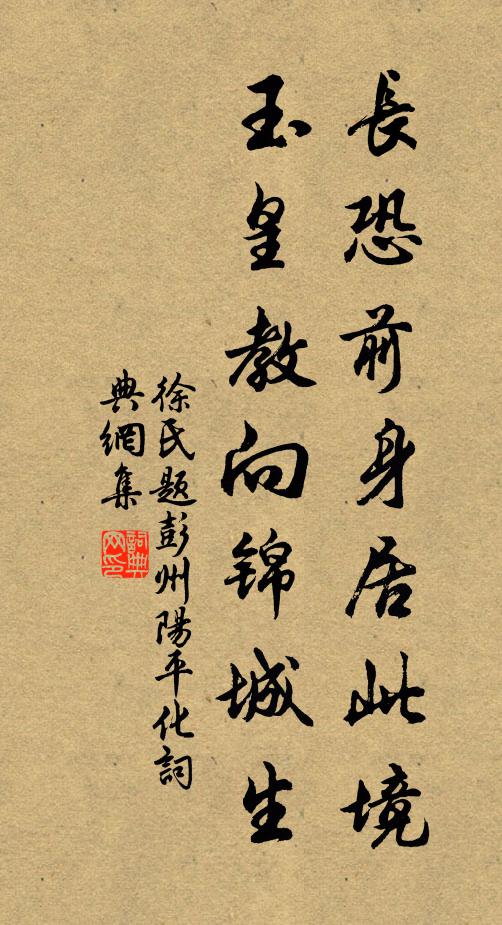 長恐前身居此境
玉皇教向錦城生
徐氏題彭州陽平化詞
典網集
詞典網印